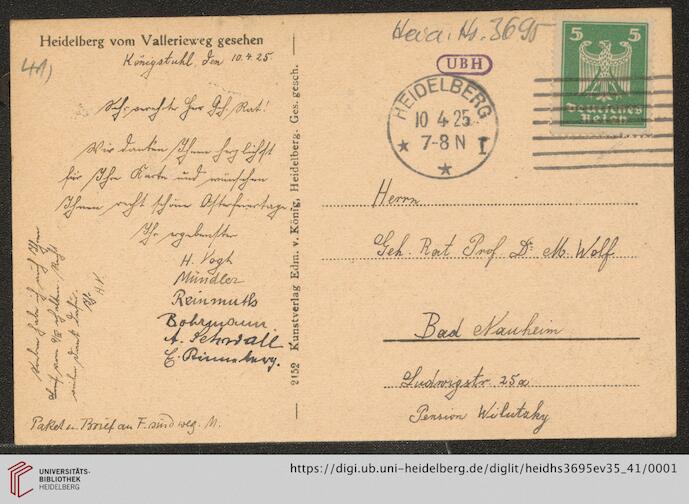 Heidelberg vom Vallerieweg gesehen
41)
Königstuhl, den 10.4.25.
Sehr verehrter Herr Geh. Rat!
Wir danken Ihnen herzlichst
für Ihre Karte und wünschen
Ihnen recht schöne Osterfeiertage.
Ihr ergebenster
H. Vogt
Mündler
Reinmuth
Bohrmann
A. Schwall
Paket u. Brief an F. sind weg. M.
H.V.
2152 Kunstverlag Edm. v. König, Heidelberg. Ges. gesch.
Heid. Hs. 3695
UBH
HEIDELBERG
10 4 25
7-8 N
I
5 5
Deutsches
Reich
Herrn
Geh. Rat Prof. Dr. M. Wolf
Bad Nauheim
Ludwigstr. 25a
Pension Wilutzky
UNIVERSITÄTS-
BIBLIOTHEK
HEIDELBERG
https://digi.ub.uni-heidelberg.de/diglit/heidhs3695ev35_41/0001